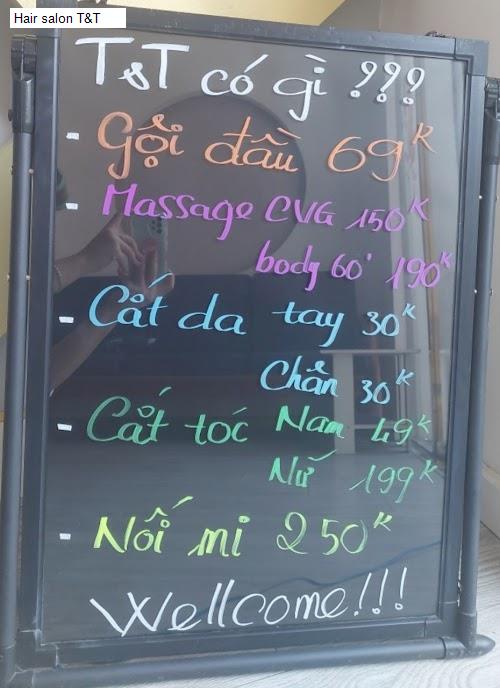 Hair salon T&T
T&T có gì ???
- Gội đầu 69K
- Massage CVG 150K
body 60' 190K
- Cắt da tay 30K
Chân 30K
- Cắt tóc Nam 49K
Nữ 199K
- Nối mi 250K
Wellcome!!!